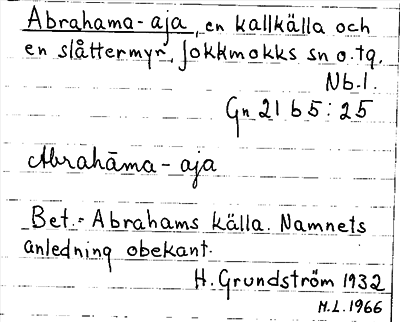 Abrahama-aja, en kallkälla och
en slåttermyr, Jokkmokks sn o. tg.
Nb.l.
Gn 21 b 5:25
Abrahāma-aja
Bet.= Abrahams källa. Namnets
anledning obekant.
H. Grundström 1932
M.L. 1966